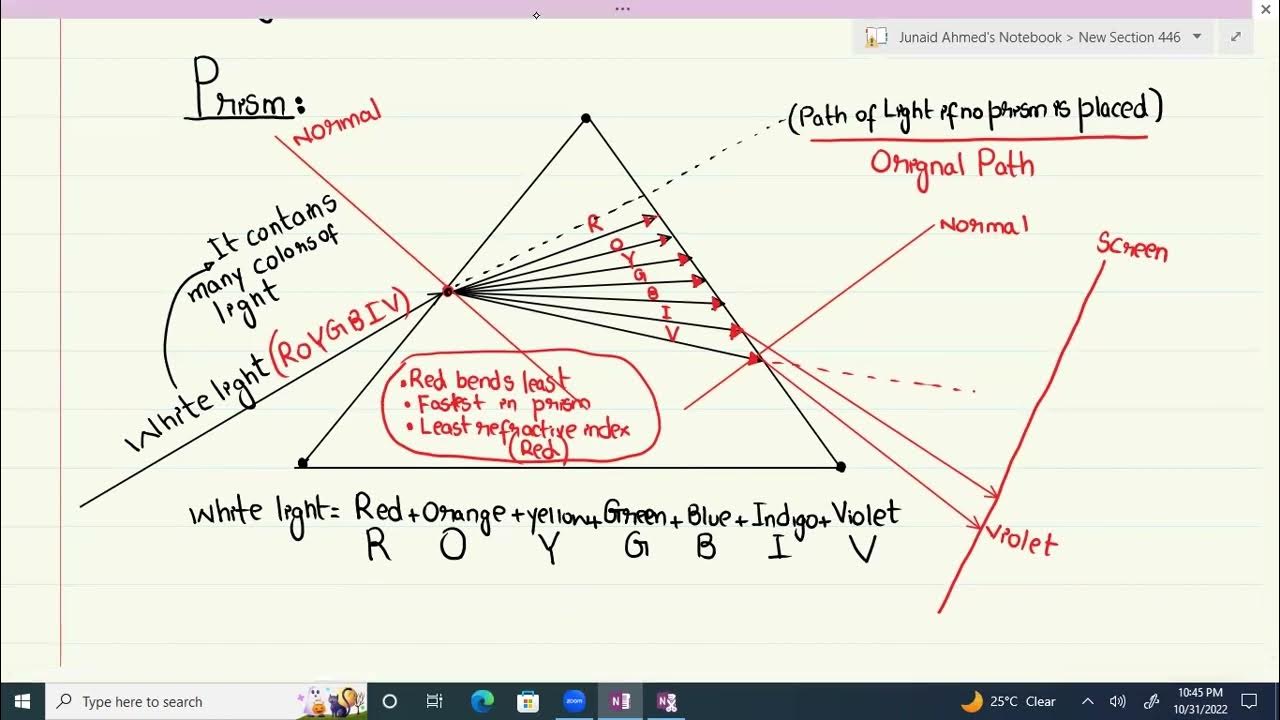 Junaid Ahmed's Notebook > New Section 446
Prism:
Normal
(Path of Light if no prism is placed)
Orignal Path
It contains
many colors of
light
White light (ROYGBIV)
R
O
Y
G
B
I
V
Normal
Screen
• Red bends least
• Fastest in prism
• Least refractive index
(Red)
White light = Red + Orange + yellow + Green + Blue + Indigo + Violet
R O Y G B I V
Violet
Type here to search
zoom
25°C Clear
10:45 PM
10/31/2022